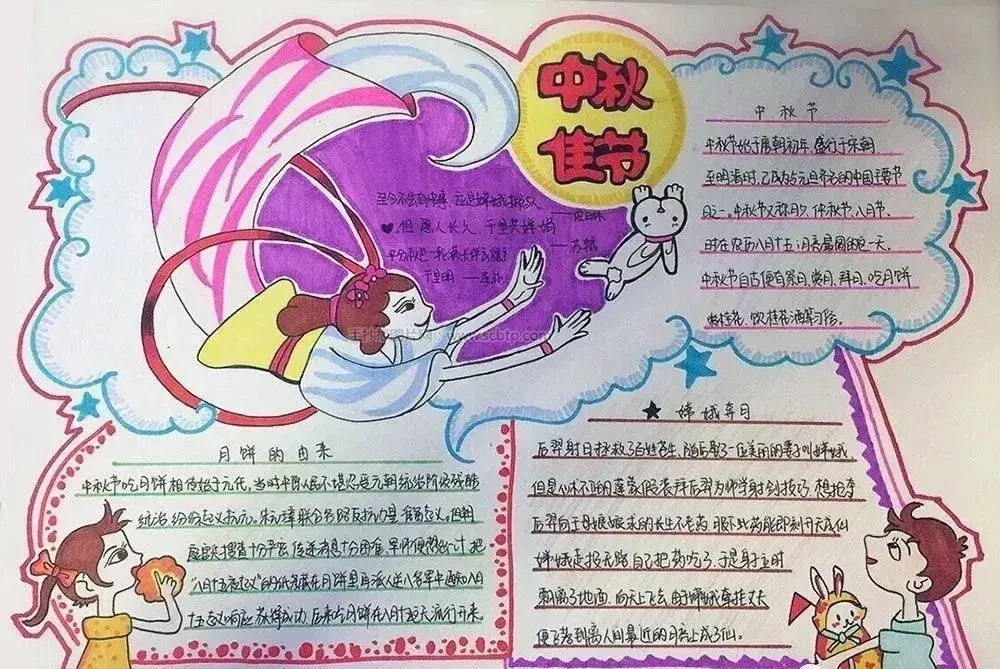 中秋
佳节
中秋节
中秋节始于唐朝初年，盛行于宋朝，
至明清时，已成为与元旦齐名的中国主要节
日之一。中秋节又称月夕、仲秋节、八月节。
时在农历八月十五；月亮最圆的一天。
中秋节自古便有祭月、赏月、拜月、吃月饼
饮桂花酒等习俗。
但愿人长久，千里共婵娟
——苏轼
平分秋色一轮满，长伴云衢
千里明——李朴
手抄报图片网 www.scbtp.com
月饼的由来
中秋节吃月饼相传始于元代，当时中原人民不堪忍受元朝统治阶级残酷
统治，纷纷起义抗元。朱元璋联合各路反抗力量准备起义。但朝
庭官兵搜查十分严密，传递消息十分困难，军师便想出一计，把
“八月十五夜起义”的纸条藏在月饼里，再派人送
后来吃月饼在八月十五天流行开来。
★ 嫦娥奔月
后羿射日拯救了百姓苍生，随后娶了一位美丽的妻子叫嫦娥。
但是心术不正的蓬蒙假装拜后羿为师学射剑技巧，想抢夺
后羿向王母娘娘求的长生不老药，服下此药能即刻升天成仙
嫦娥走投无路，自己把药吃了，于是身立时
飘离了地面，向天上飞去，由于嫦娥牵挂丈夫
便飞落到离人间最近的月亮上成了仙。